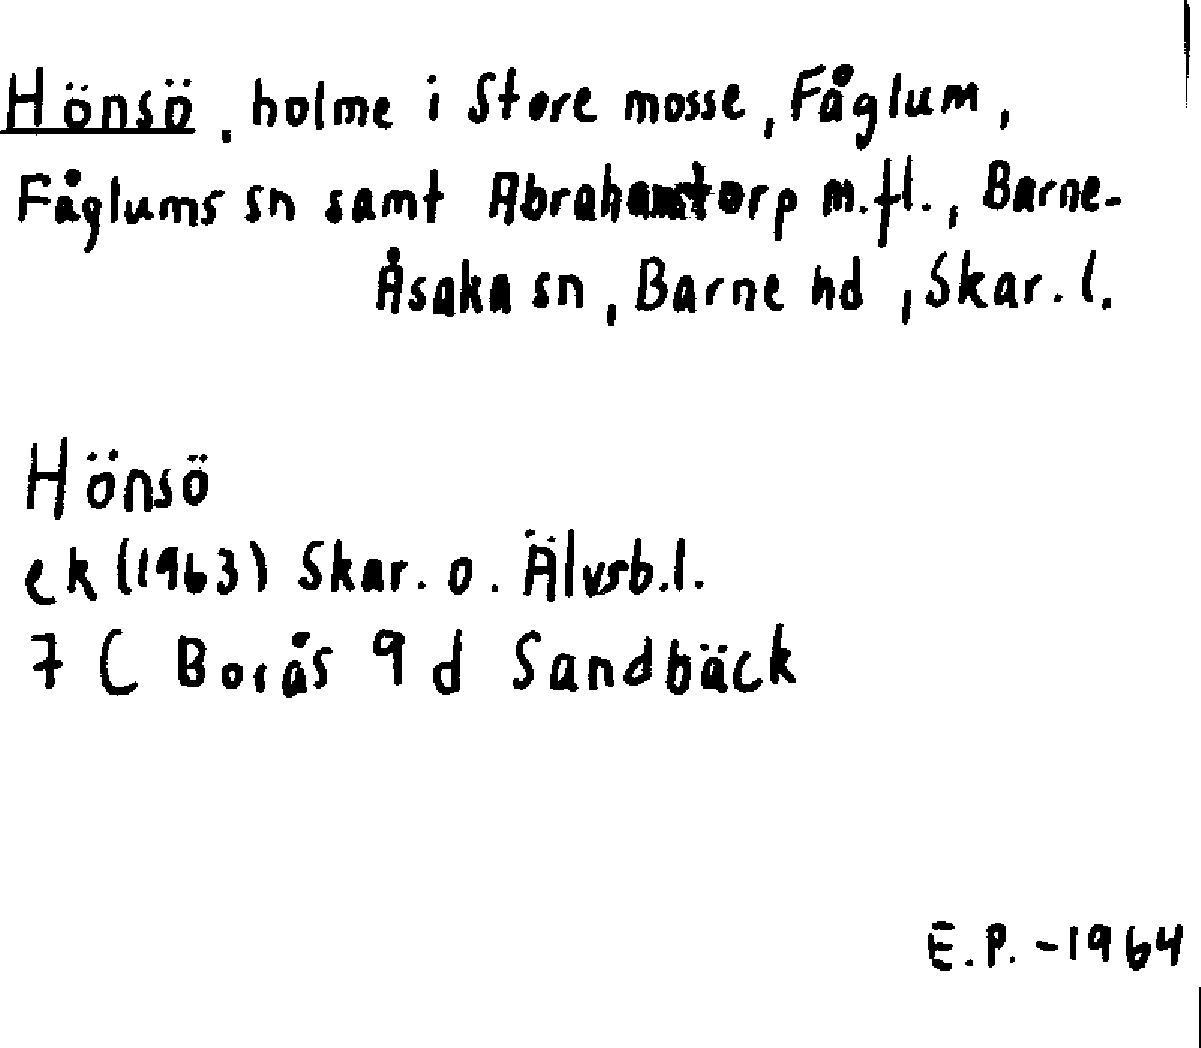 Hönsö, holme i Store mosse, Fåglum,
Fåglums sn samt Abrahamstorp m.fl., Barne-
Åsaka sn, Barne hd, Skar. l.
Hönsö
ek (1963) Skar. o. Älvsb.l.
7 C Borås 9 d Sandbäck
E.P. -1964